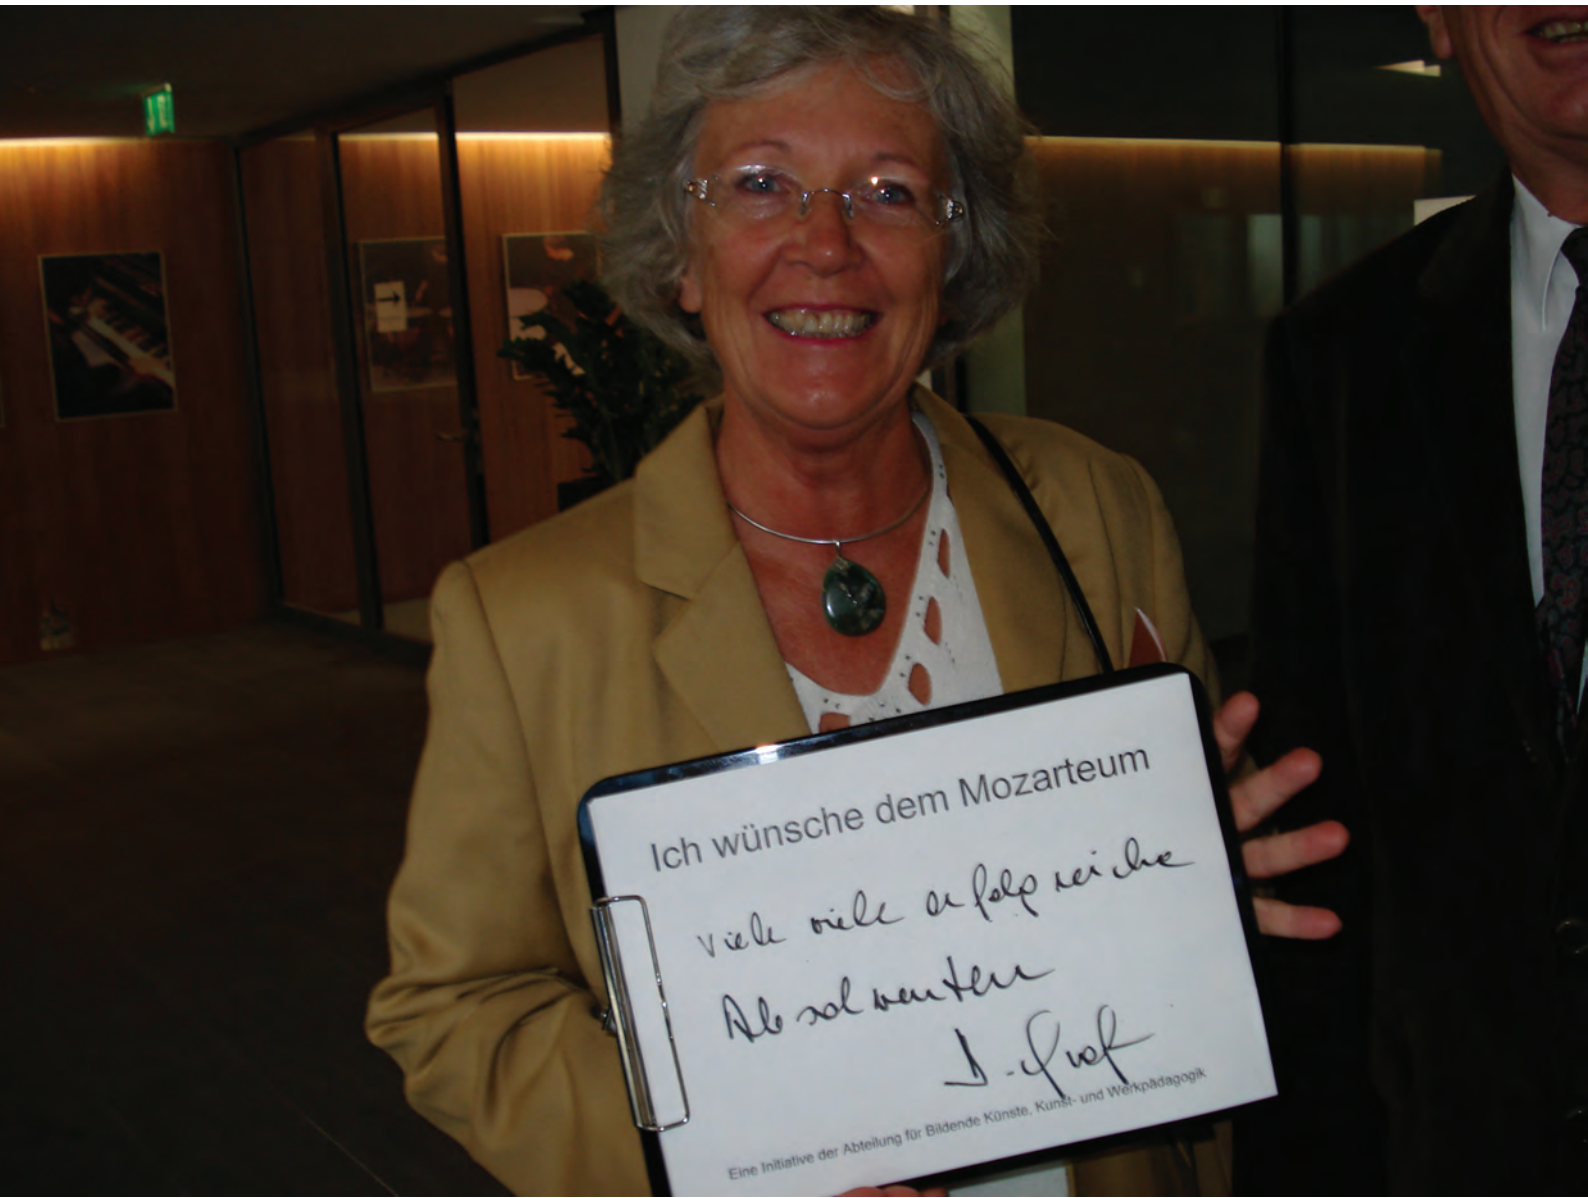 Ich wünsche dem Mozarteum
viele viele erfolgreiche
Absolventen
D. Graf
Eine Initiative der Abteilung für Bildende Künste, Kunst- und Werkpädagogik